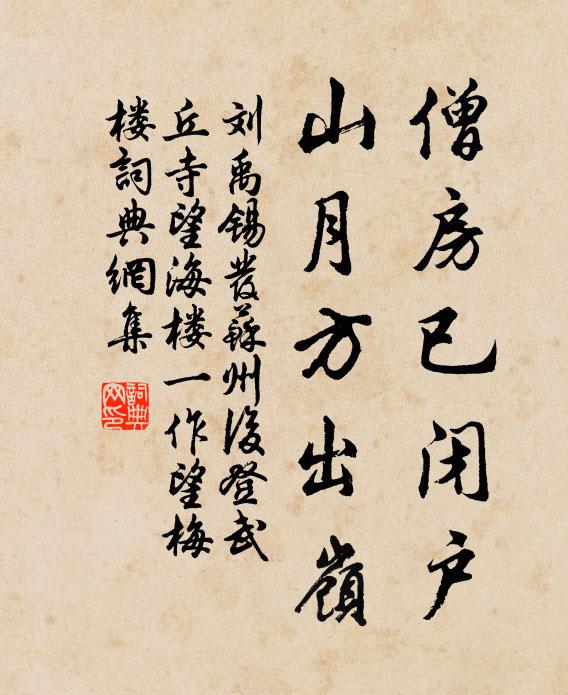 僧房已闭户
山月方出嶺
刘禹锡发蘇州後登武
丘寺望海楼一作望梅
楼詞典網集
詞典
网印